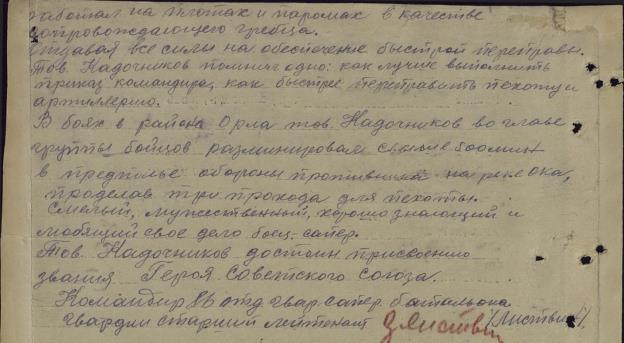 работал на плотах и паромах в качестве
сопровождающего гребца.
Отдавая все силы на обеспечение быстрой переправы.
Тов. Надочников помнил одно: как лучше выполнить
приказ командира, как быстрее переправить пехоту и
артиллерию.
В боях в районе Орла тов. Надочников во главе
группы бойцов разминировал свыше 600 мин
в предполье обороны противника на реке Ока,
проделав три прохода для пехоты.
Смелый, мужественный, хорошо знающий и
любящий свое дело боец-сапер.
Тов. Надочников достоин присвоению
звания Героя Советского Союза.
Командир 86 отд гвар. сапер. батальона
гвардии старший лейтенант /Листвин/